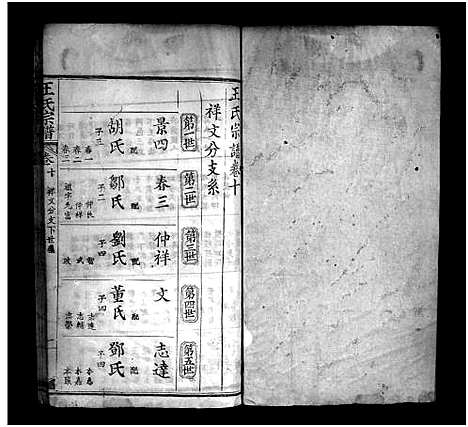 王氏宗譜卷十
祥文分支系
第一世
景四
配
胡氏
子三
春一
春二
春三
第二世
春三
配
鄒氏
子二
仲祥
第三世
仲祥
配
劉氏
子四
文
武
第四世
文
配
董氏
子四
志達
第五世
志達
配
鄧氏
子四
王氏宗譜
卷十
祥文分支下世系